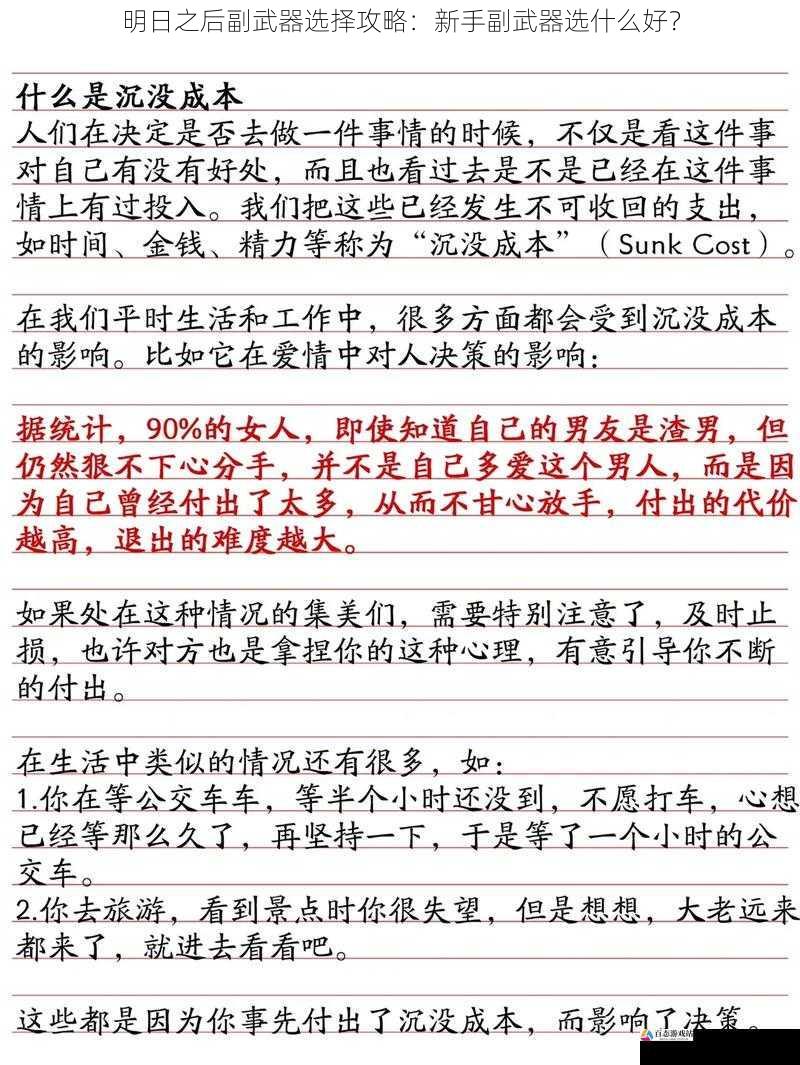 明日之后副武器选择攻略：新手副武器选什么好？
什么是沉没成本
人们在决定是否去做一件事情的时候，不仅是看这件事
对自己有没有好处，而且也看过去是不是已经在这件事
情上有过投入。我们把这些已经发生不可收回的支出，
如时间、金钱、精力等称为“沉没成本”（Sunk Cost）。
在我们平时生活和工作中，很多方面都会受到沉没成本
的影响。比如它在爱情中对人决策的影响：
据统计，90%的女人，即使知道自己的男友是渣男，但
仍然狠不下心分手，并不是自己多爱这个男人，而是因
为自己曾经付出了太多，从而不甘心放手，付出的代价
越高，退出的难度越大。
如果处在这种情况的集美们，需要特别注意了，及时止
损，也许对方也是拿捏你的这种心理，有意引导你不断
的付出。
在生活中类似的情况还有很多，如：
1.你在等公交车车，等半个小时还没到，不愿打车，心想
已经等那么久了，再坚持一下，于是等了一个小时的公
交车。
2.你去旅游，看到景点时你很失望，但是想想，大老远来
都来了，就进去看看吧。
这些都是因为你事先付出了沉没成本，而影响了决策。
百态游戏站